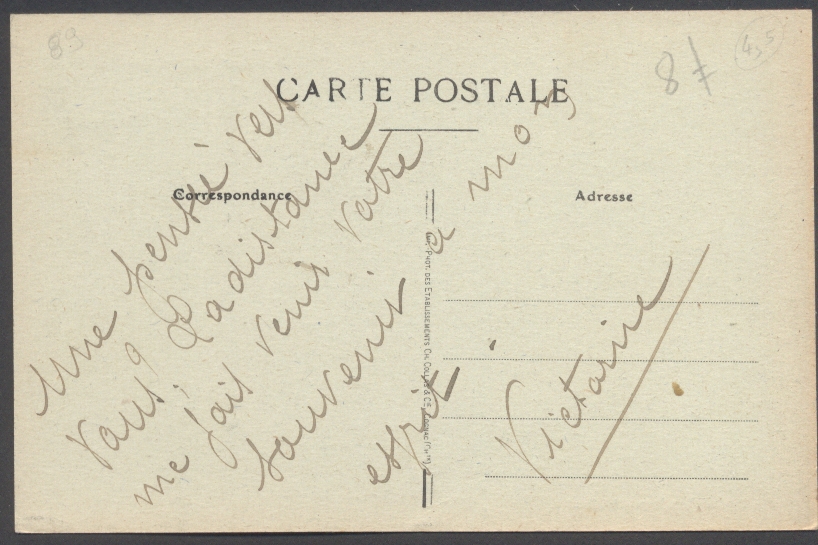 89
87
4,5
CARTE POSTALE
Correspondance
Adresse
Une pensée vers
vous La distance
me fais venir votre
souvenir a mon
esprit.
Victorine
IMP. PHOT. DES ETABLISSEMENTS CH. COLLAS & Cie, COGNAC (Chte)